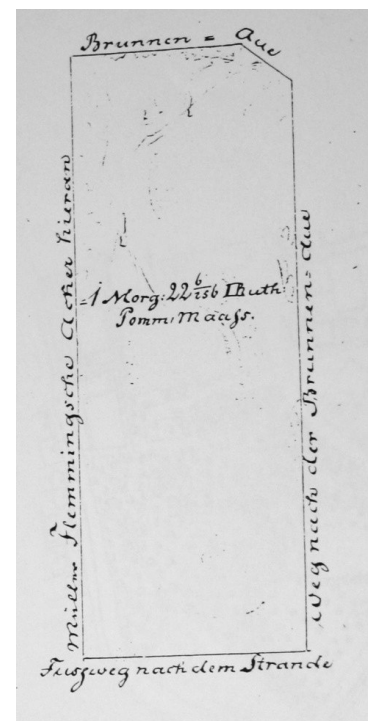 Brunnen = Aue
Müller Flemmingsche Acker hieran
1 Morg: 22 6/256 □Ruth:
Pomm: Maaſs.
Weg nach der Brunnen = Aue
Fusʒweg nach dem Strande